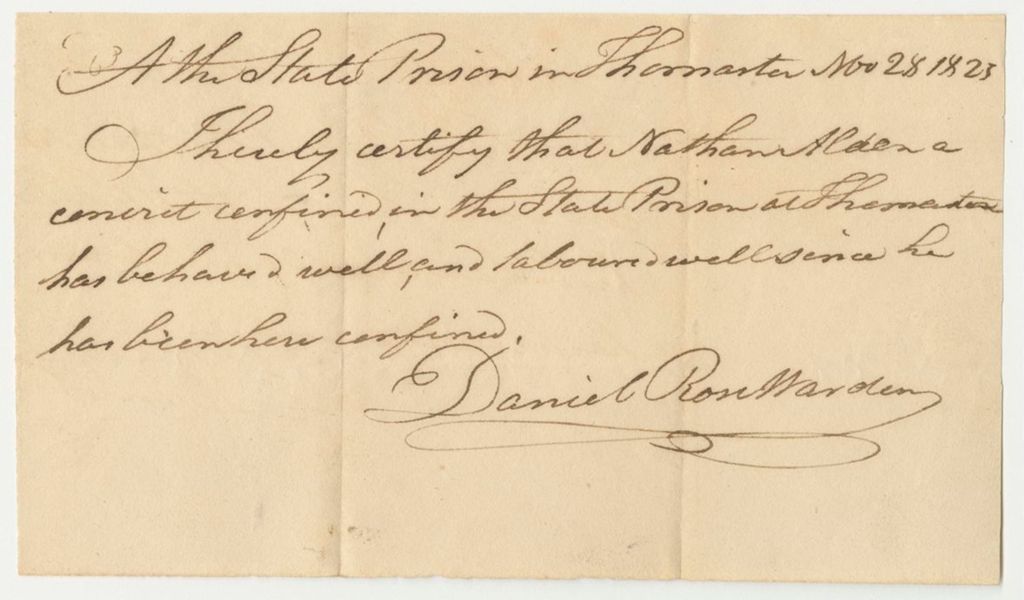 At the State Prison in Thomaston Nov 28 1825
I hereby certify that Nathan Alden a
convict confined, in the State Prison at Thomaston
has behaved well, and laboured well since he
has been here confined.
Daniel Rose Warden